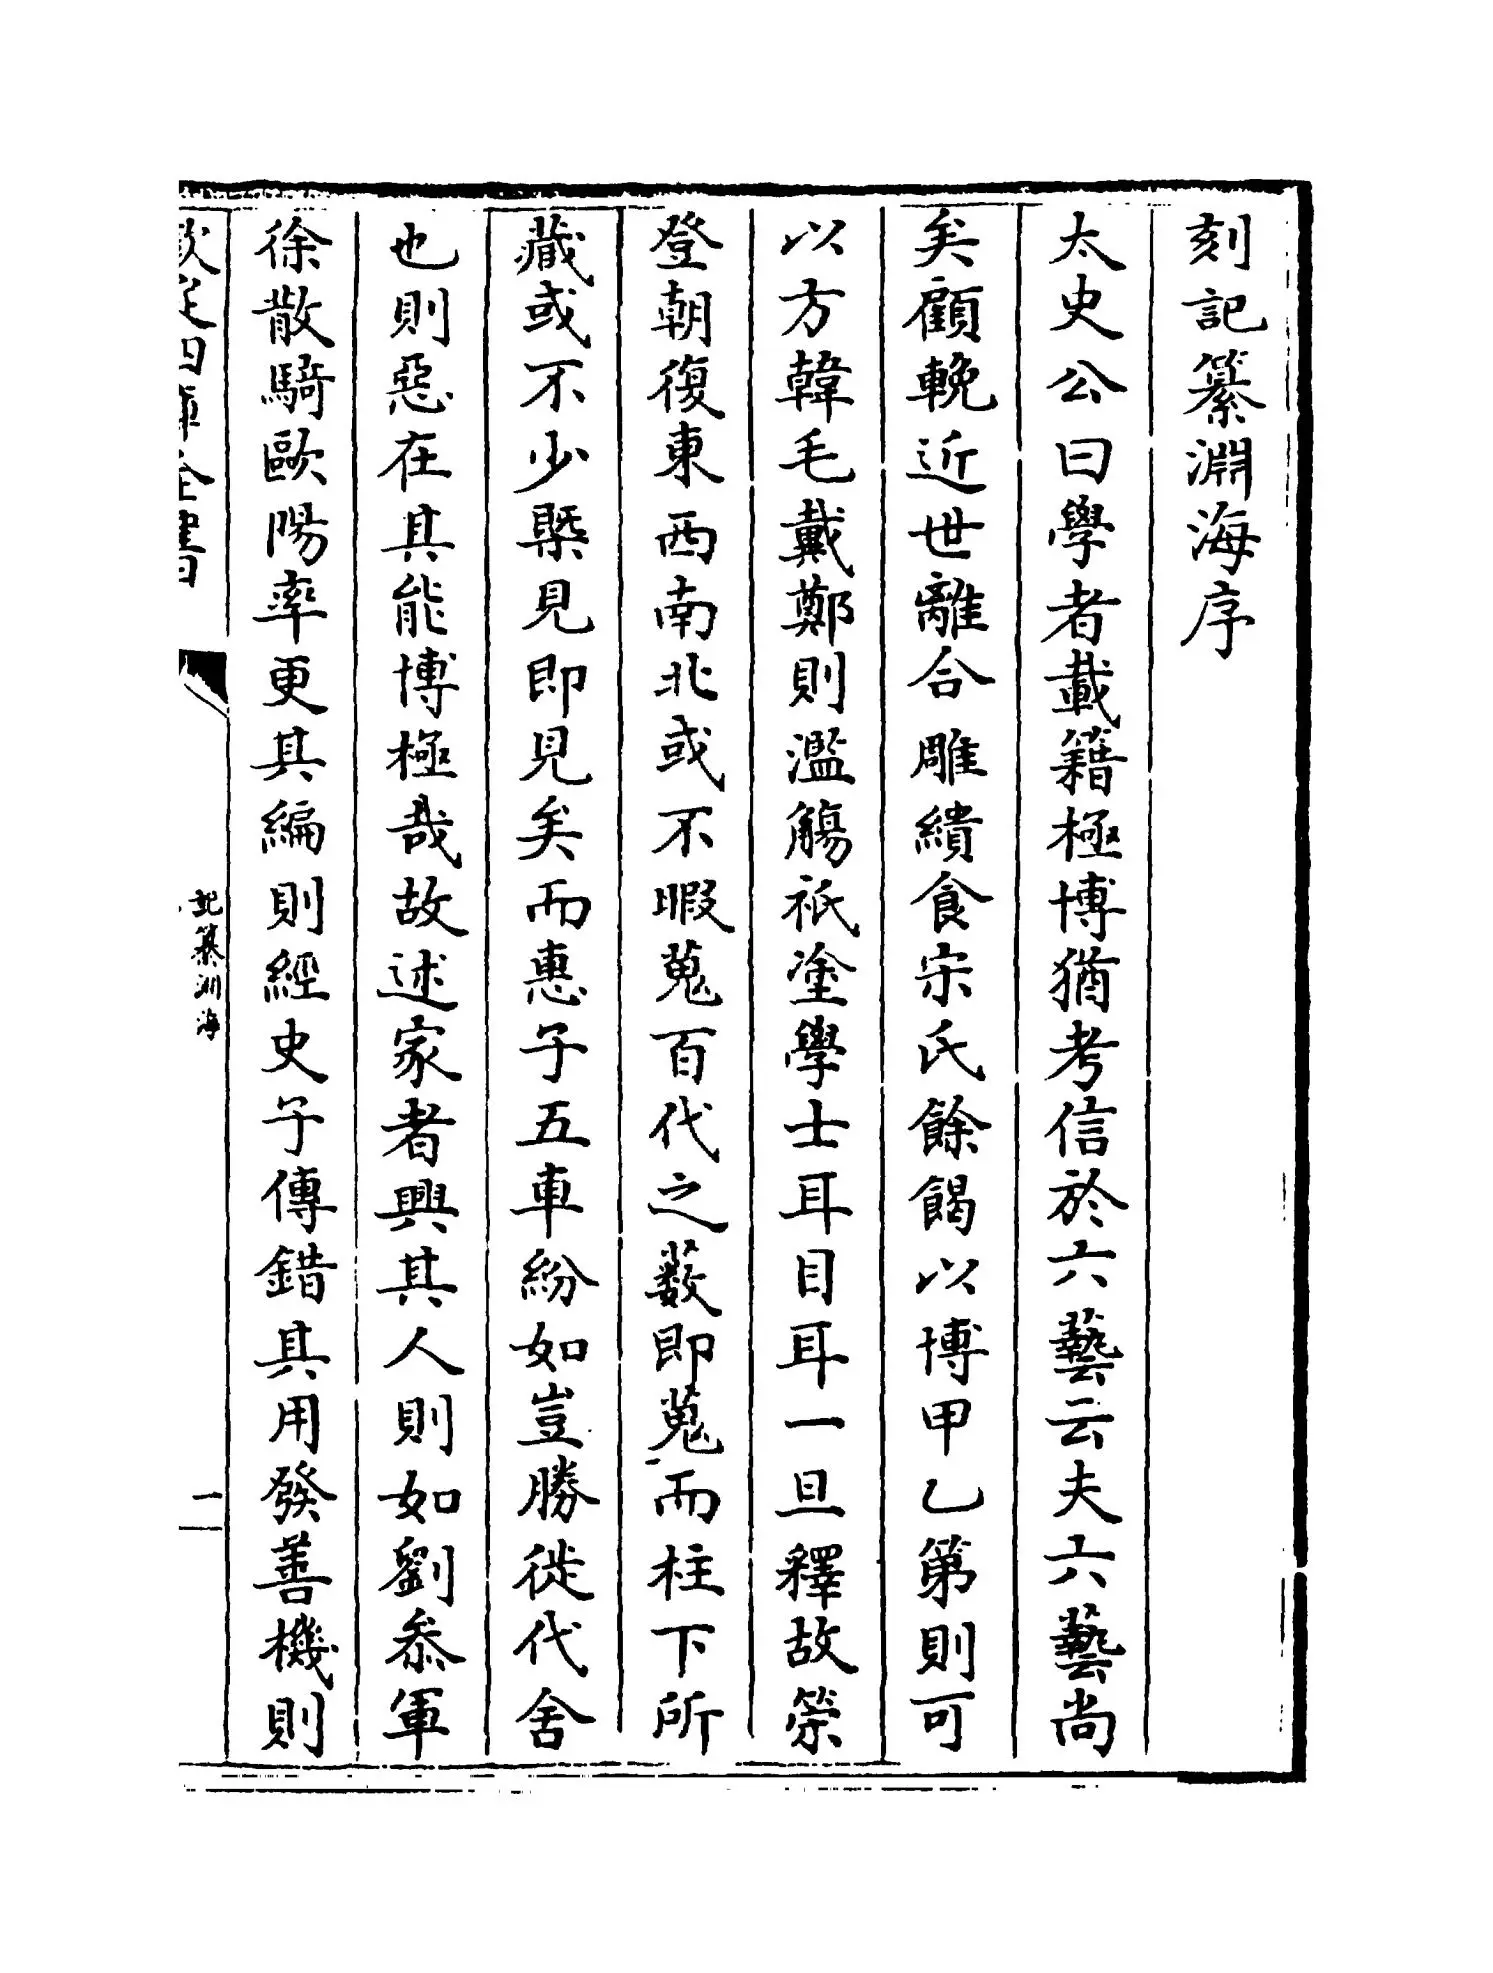 刻記纂淵海序
太史公曰學者載籍極博猶考信於六藝云夫六藝尚
矣顧輓近世離合雕繢食宋氏餘餲以博甲乙第則可
以方韓毛戴鄭則濫觴祇塗學士耳目耳一旦釋故業
登朝復東西南北或不暇蒐百代之藪即蒐而柱下所
藏或不少槩見即見矣而惠子五車紛如豈勝徙代舍
也則惡在其能博極哉故述家者興其人則如劉叅軍
徐散騎歐陽率更其編則經史子傳錯其用發善機則
欽定四庫全書
記纂淵海
一